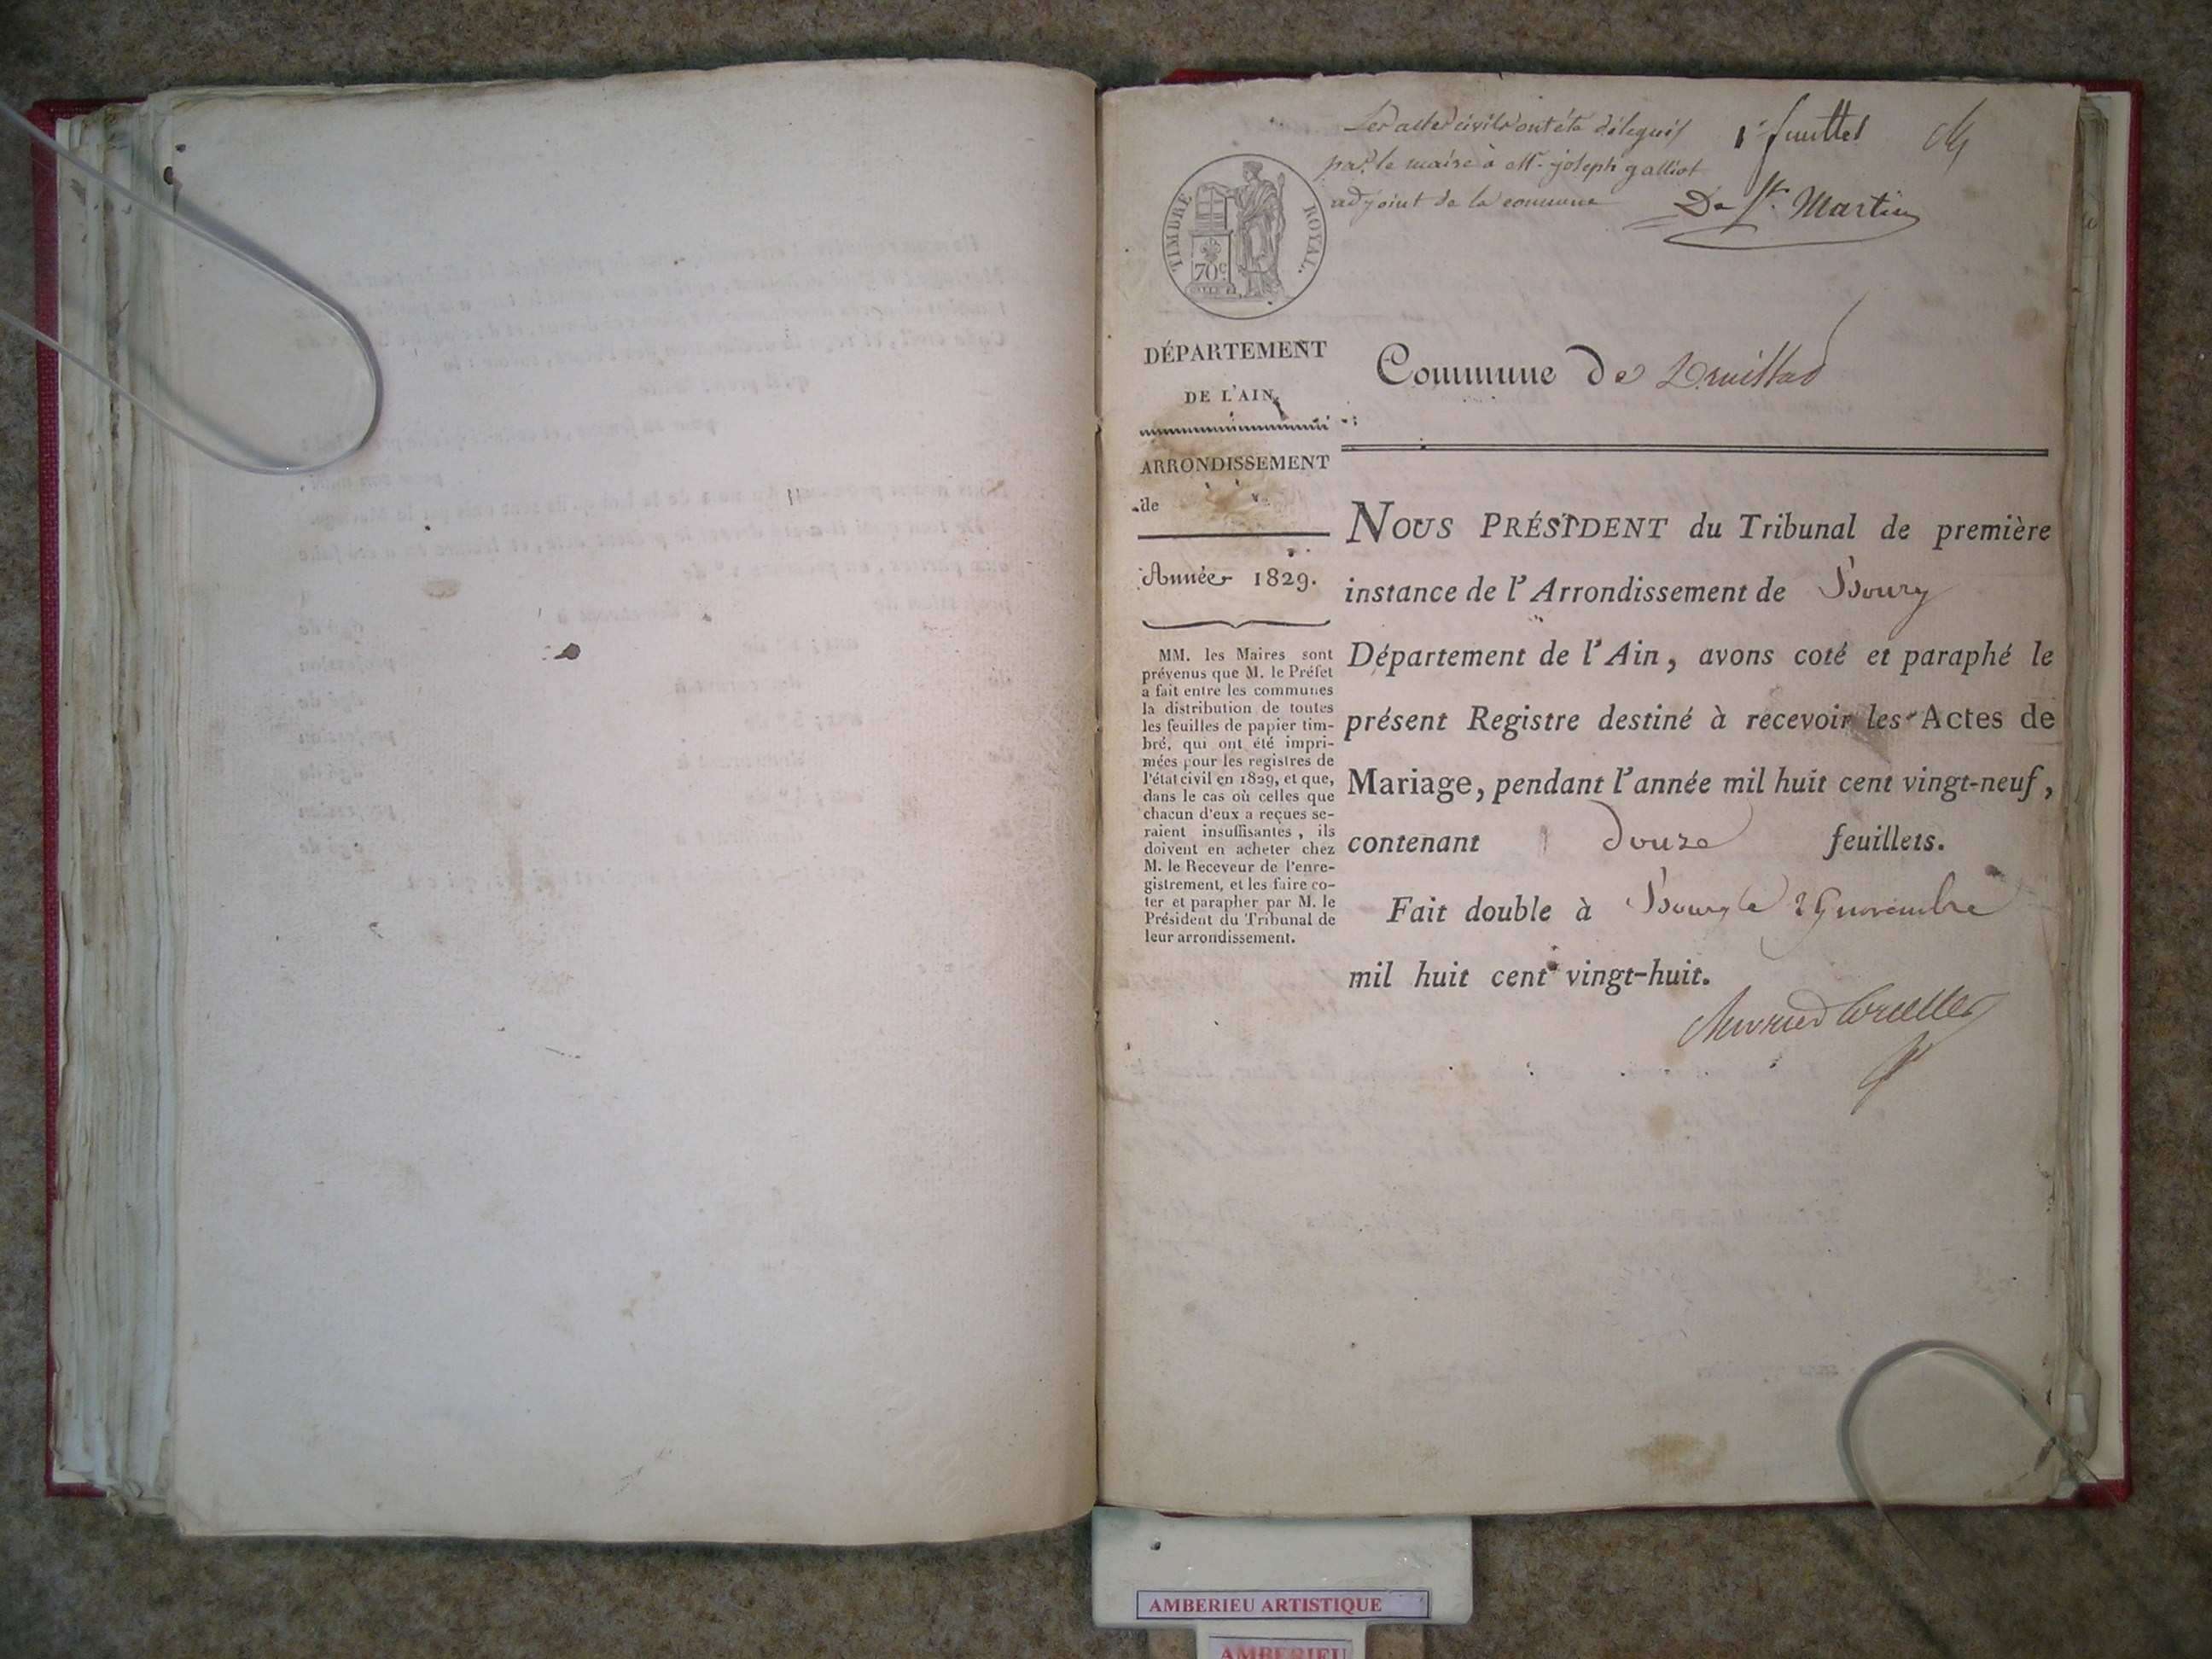 Les actes civils ont été délégués
par le maire à Mr. joseph galliot
adjoint de la commune
1er feuillet
De St. Martin
TIMBRE ROYAL.
70c
DÉPARTEMENT
DE L'AIN,
ARRONDISSEMENT
de
Année 1829.
MM. les Maires sont
prévenus que M. le Préfet
a fait entre les communes
la distribution de toutes
les feuilles de papier tim-
bré, qui ont été impri-
mées pour les registres de
l'état civil en 1829, et que,
dans le cas où celles que
chacun d'eux a reçues se-
raient insuffisantes, ils
doivent en acheter chez
M. le Receveur de l'enre-
gistrement, et les faire co-
ter et parapher par M. le
Président du Tribunal de
leur arrondissement.
Commune de Druillat
NOUS PRÉSIDENT du Tribunal de première
instance de l'Arrondissement de Bourg
Département de l'Ain, avons coté et paraphé le
présent Registre destiné à recevoir les Actes de
Mariage, pendant l'année mil huit cent vingt-neuf,
contenant douze feuillets.
Fait double à Bourg le 29 novembre
mil huit cent vingt-huit.
AMBERIEU ARTISTIQUE
AMBERIEU